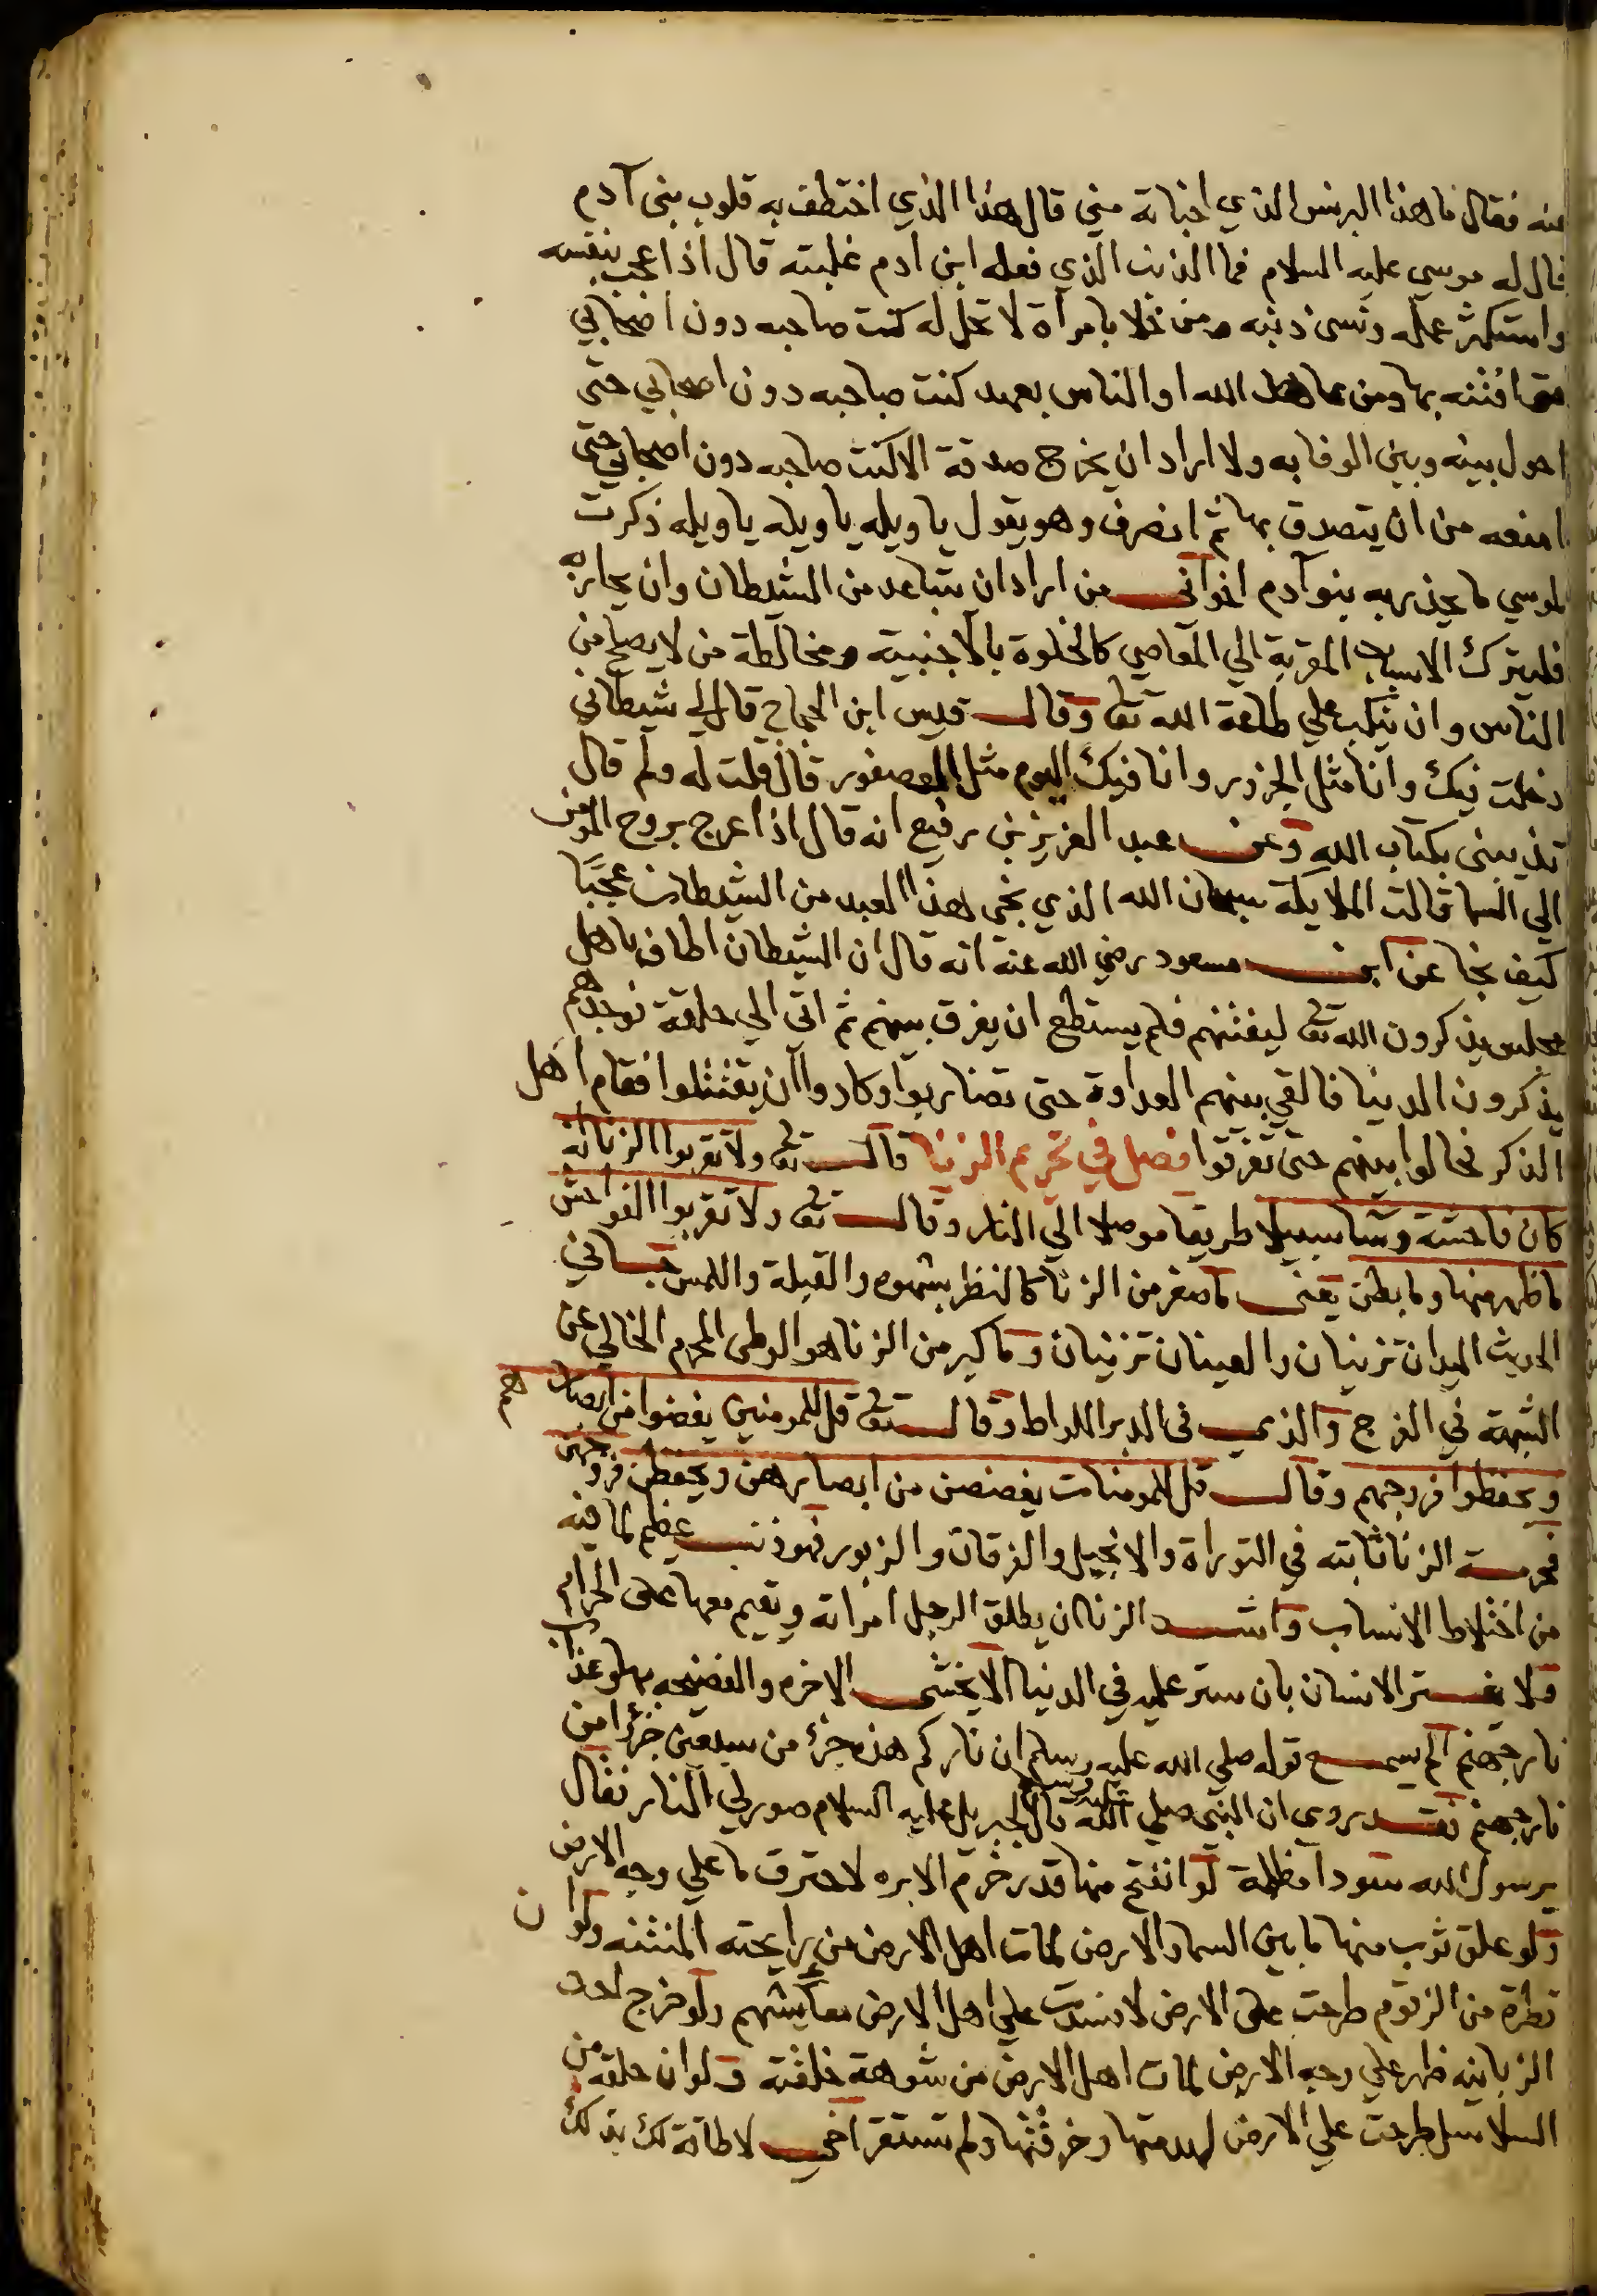 عنه فقال ما هذا البرنس الذي اخباته مني قال هذا الذي اختطف به قلوب بني آدم
فقال له موسي عليه السلام فما الذنب الذي فعله ابن ادم غلبته قال اذا اعجب بنفسه
واستكثر عمله ونسى ذنبه ومن خلا بامرأة لا تحل له كنت صاحبه دون اصحابي
حتى افتنه بها ومن عاهد الله او الناس بعهد كنت صاحبه دون اصحابي حتى
احول بينه وبين الوفا به ولا اراد ان يخرج صدقة الا كنت صاحبه دون اصحابي حتى
امنعه من ان يتصدق بها ثم انصرف وهو يقول يا ويله يا ويله يا ويله ذكرت
لموسي ما يحذر به بنو آدم اخواني من اراد ان يتباعد من الشيطان وان يحاربه
فليترك الاسباب المقربة الي المعاصي كالخلوة بالاجنبية ومخالطة من لا يصلح من
الناس وان ينكب علي طاعة الله تعا وقال قيس ابن الحجاج قال لي شيطاني
دخلت فيك وانا مثل الجزور وانا فيك اليوم مثل العصفور قال قلت له ولم قال
تذيبني بكتاب الله وعن عبد العزيز بن رفيع انه قال اذا اعرج بروح المومن
الي السما قالت الملايكة سبحان الله الذي نجي هذا العبد من الشيطان عجبًا
كيف نجا عن ابن مسعود رضي الله عنه انه قال ان الشيطان اطاف باهل
مجلس يذكرون الله تعا ليفتنهم فلم يستطع ان يفرق بينهم ثم اتى الي حلقة فوجدهم
يذكرون الدنيا فالقي بينهم العداوة حتى تضاربوا وكادوا ان يقتتلوا فقام اهل
الذكر فحالوا بينهم حتى تفرقوا فصل في تحريم الزنا قال تعا ولا تقربوا الزنا انه
كان فاحشة وسا سبيلا طريقا موصلا الي النار وقال تعا ولا تقربوا الفواحش
ما ظهر منها وما بطن يعني ما صغر من الزنا كالنظر بشهوه والقبلة واللمس في
الحديث اليدان تزنيان والعينان تزنيان وما كبر من الزنا هو الوطي المحرم الخالي عن
الشبهة في الفرج والذي في الدبر اللواط وقال تعا قل للمومنين يغضوا من ابصارهم
ويحفظوا فروجهم وقال قل للمومنات يغضضن من ابصارهن ويحفظن فروجهن
فحرمة الزنا ثابته في التوراة والانجيل والفرقان والزبور فهو ذنب عظيم لما فيه
من اختلاط الانساب واشد الزنا ان يطلق الرجل امراته ويقيم معها على الحرام
ولا يغتر الانسان بان ستر عليه في الدنيا الا يخشى الاخره والفضيحه بها وعذاب
نار جهنم الم يسمع قوله صلي الله عليه وسلم ان ناركم هذه جزء من سبعين جزءا من
نار جهنم فقد روي ان النبي صلي الله عليه وسلم قال لجبريل عليه السلام صور لي النار فقال
يرسول الله سودا مظلمة لو انفتح منها قدر خرم الابره لاحترق ما علي وجه الارض
ولو علق ثوب منها ما بين السما والارض لمات اهل الارض من رايحته المنتنه ولو ان
قطرة من الزقوم طرحت على الارض لافسدت علي اهل الارض معايشهم ولو خرج احد
الزبانيه ظهر علي وجه الارض لمات اهل الارض من شوهة خلقته ولو ان حلقه من
السلاسل طرحت علي الارض لهدمتها وخرقتها ولم تستقر اخي لا طاقة لك بذلك